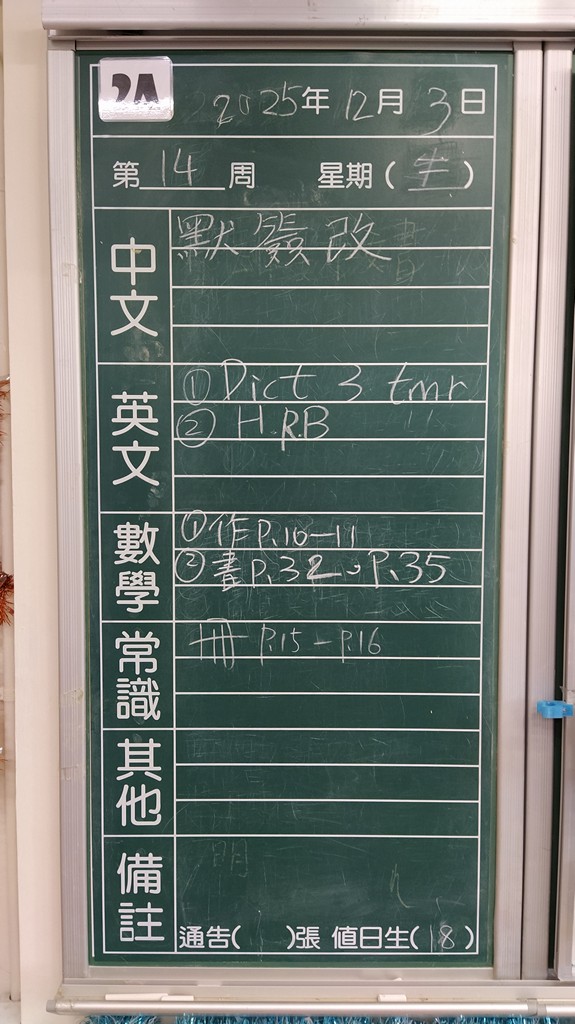 2A
2025年12月3日
第14周 星期( )
中文
默簽改
英文
① Dict 3 tmr
② H.R.B
數學
① 作P.10-11
② 書P.32、P.35
常識
冊 P.15-P.16
其他
備註
通告( )張 值日生(18)